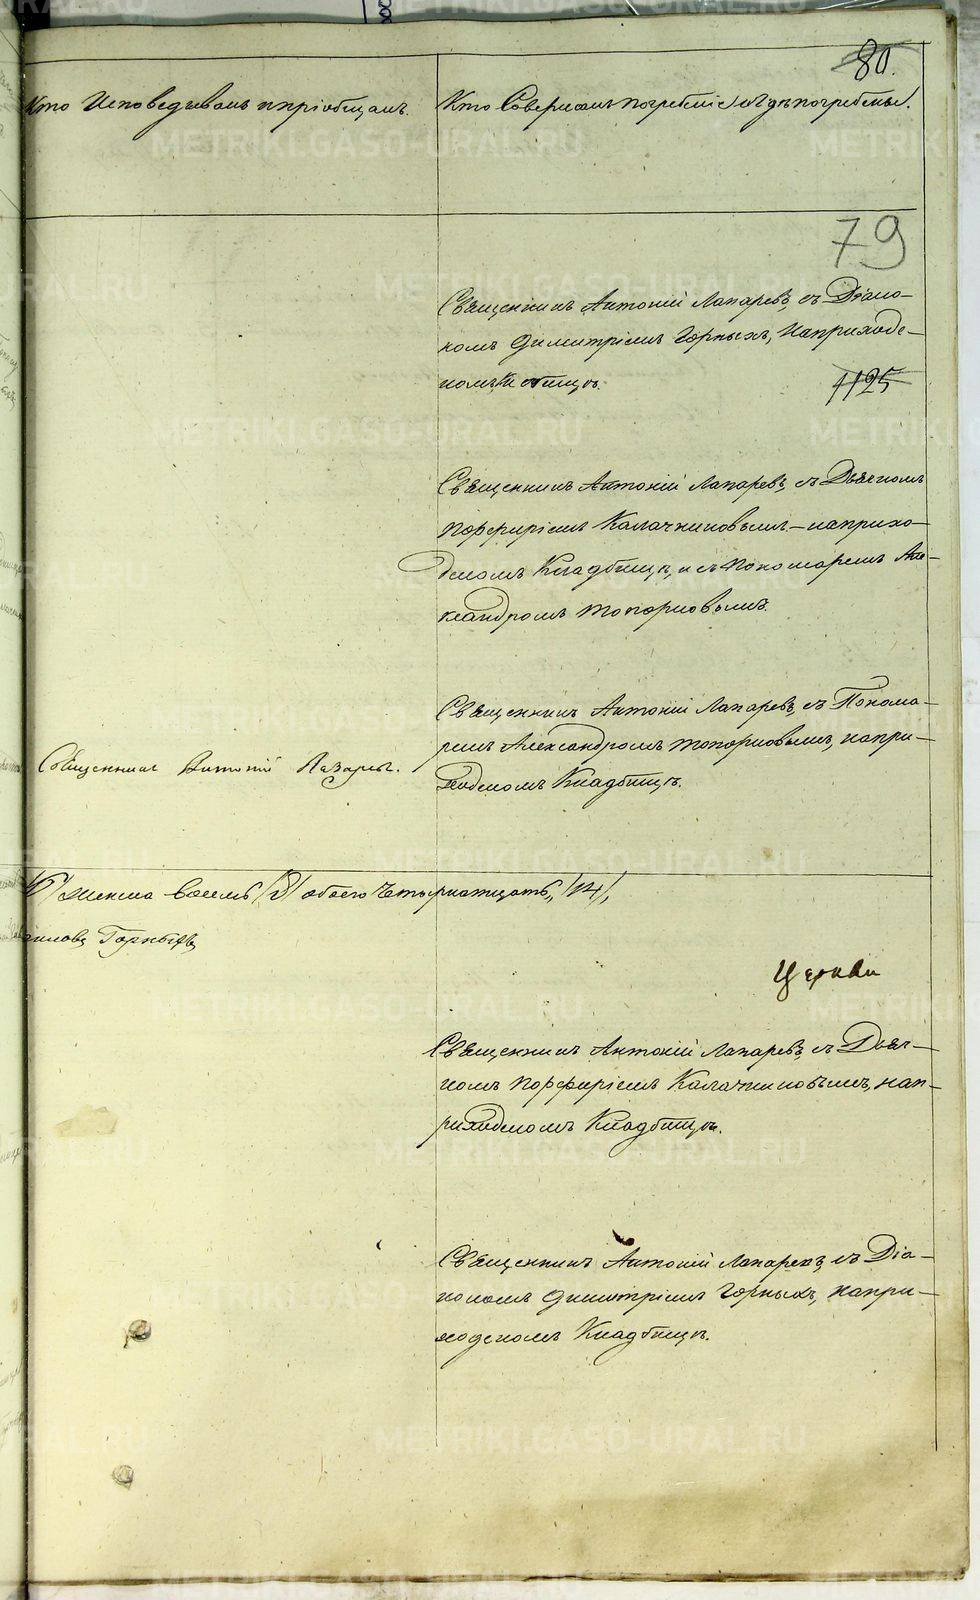 80.
Кто Исповедывалъ и пріобщалъ.
Кто Совершалъ погребеніе и гдѣ погребены.
79
Священникъ Антоній Лапаревъ, съ Діако-
номъ Димитріемъ Горныхъ, на приходс-
комъ Кладбищѣ.
1125
Священникъ Антоній Лапаревъ, съ Дьячкомъ
Порфиріемъ Калачниковымъ на прихо-
дскомъ Кладбищѣ, и съ Пономаремъ Але-
ксандромъ Топорковымъ.
Священникъ Антоній Лапаревъ, съ Понома-
ремъ Александромъ Топорковымъ, на при-
ходскомъ Кладбищѣ.
Священникъ Антоній Лазаревъ.
/6/ женска восемь /8/ обоего четырнатцать /14/,
Горныхъ
Церкви
Священникъ Антоній Лапаревъ, съ Дьяч-
комъ Порфиріемъ Калачниковымъ, на п-
риходскомъ Кладбищѣ.
Священникъ Антоній Лапаревъ, съ Діа-
кономъ Димитріемъ Горныхъ, на при-
ходскомъ Кладбищѣ.
METRIKI.GASO-URAL.RU